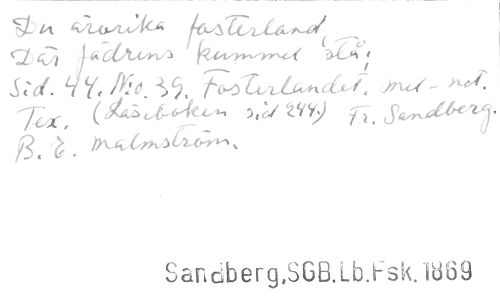 Du ärorika fosterland,
Där fädrens kummel stå;
Sid. 44. N:o. 39. Fosterlandet. mel-not.
Tex. (Läseboken sid 244.) Fr. Sandberg.
B. E. Malmström.
Sandberg,SGB.Lb.Fsk.1869